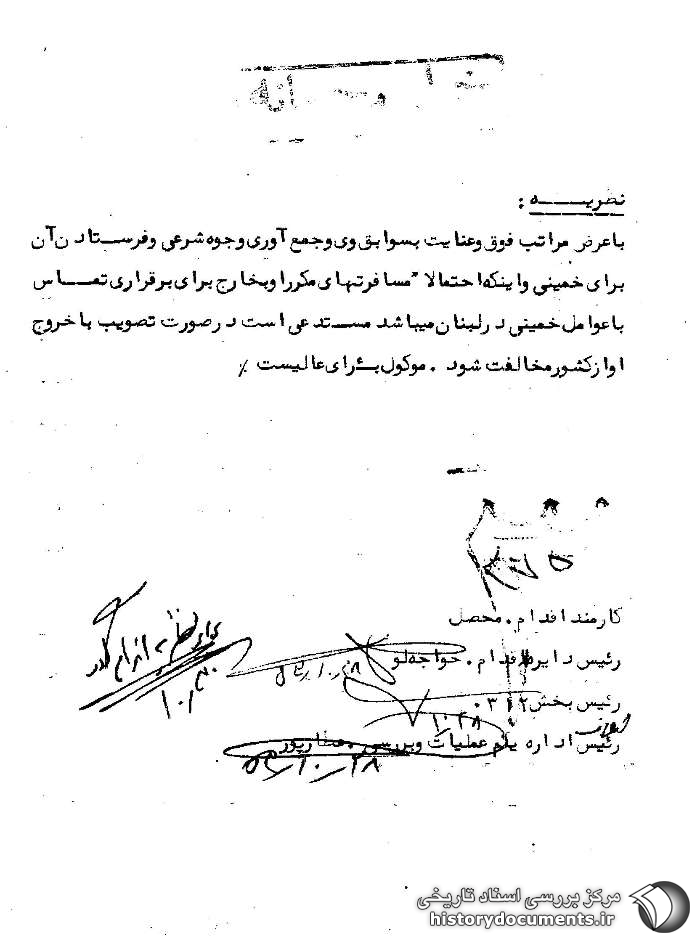 نظریـــــه :
با عرض مراتب فوق و عنایت بسوابق وی و جمع آوری وجوه شرعی و فرستادن آن
برای خمینی و اینکه احتمالا" مسافرتهای مکرر او بخارج برای برقراری تمـــاس
با عوامل خمینی در لبنان میباشد مستدعی است در صورت تصویب با خروج
او از کشور مخالفت شود . موکول برأی عالیست ٪
کارمند اقدام . محصل
رئیس دایره اقدام . خواجه‌لو
۵۳/۱۰/۲۸
رئیس بخش ۳۱۲ .
۱۰/۲۸
رئیس اداره یکم عملیات و بررسی . عطارپور
۵۳/۱۰/۲۸
مرکز بررسی اسناد تاریخی
historydocuments.ir